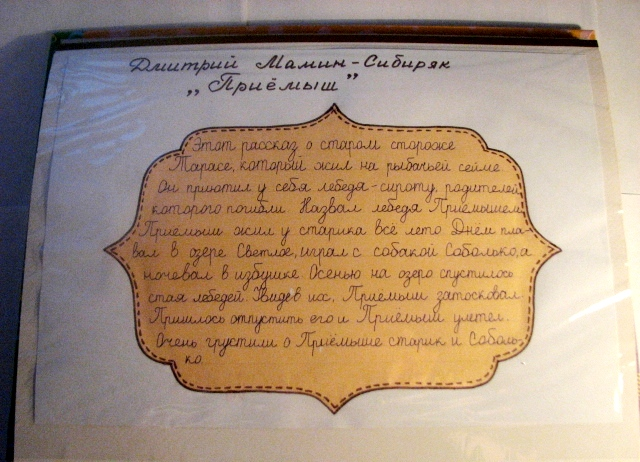 Дмитрий Мамин-Сибиряк
„Приёмыш”
Этот рассказ о старом стороже
Тарасе, который жил на рыбачьей сейме
Он приютил у себя лебедя-сироту, родители
которого погибли. Назвал лебедя Приёмышем.
Приёмыш жил у старика всё лето. Днём пла-
вал в озере Светлое, играл с собакой Соболько, а
ночевал в избушке. Осенью на озеро спустилось
стая лебедей. Увидев их, Приёмыш затосковал.
Пришлось отпустить его и Приёмыш улетел.
Очень грустили о Приёмыше старик и Соболь-
ко.